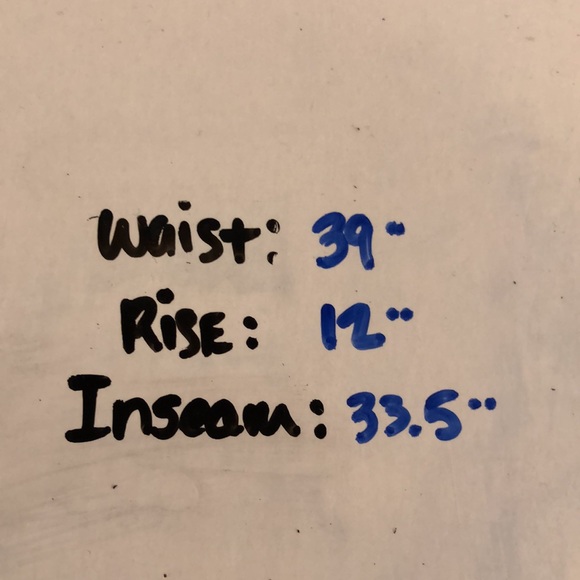 Waist: 39"
RiSE: 12"
Inseam: 33.5"